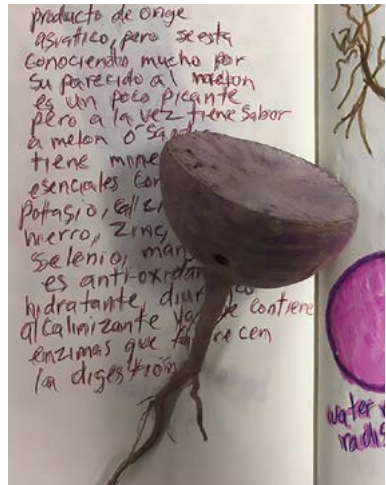 producto de orige
asiatico, pero se esta
conociendo mucho por
su parecido al melon
es un poco picante
pero a la vez tiene sabor
a melon o
tiene
esenciales
potasio,
hierro, zinc,
selenio,
es anti-oxidan
hidratante,
alcalinizante contiene
enzimas que
la digestion
water
radis